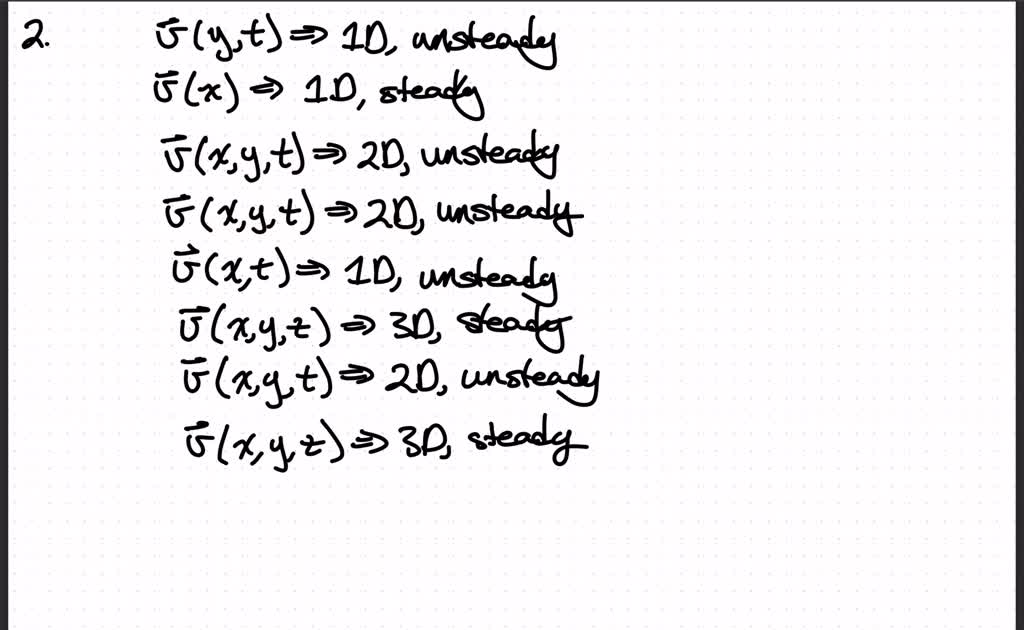 2. v⃗(y,t) ⇒ 1D, unsteady
v⃗(x) ⇒ 1D, steady
v⃗(x,y,t) ⇒ 2D, unsteady
v⃗(x,y,t) ⇒ 2D, unsteady
v⃗(x,t) ⇒ 1D, unsteady
v⃗(x,y,z) ⇒ 3D, steady
v⃗(x,y,t) ⇒ 2D, unsteady
v⃗(x,y,z) ⇒ 3D, steady